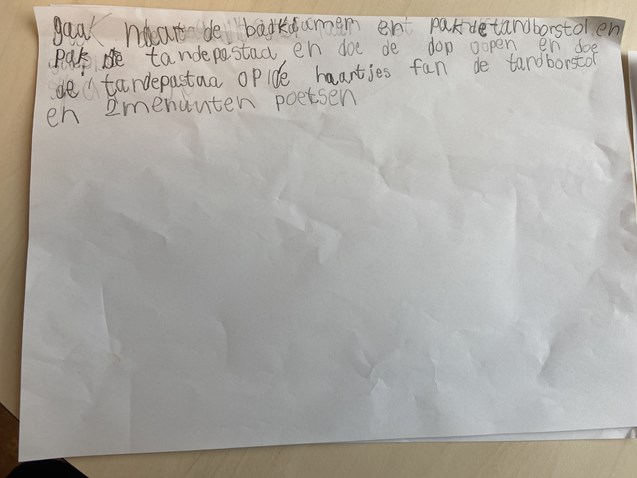 gaak naar de badkaamer en pak de tandborstol en
pak de tandepastaa en doe de dop oopen en doe
de tandepastaa op de haartjes fan de tandborstol
en 2menuunten poetsen